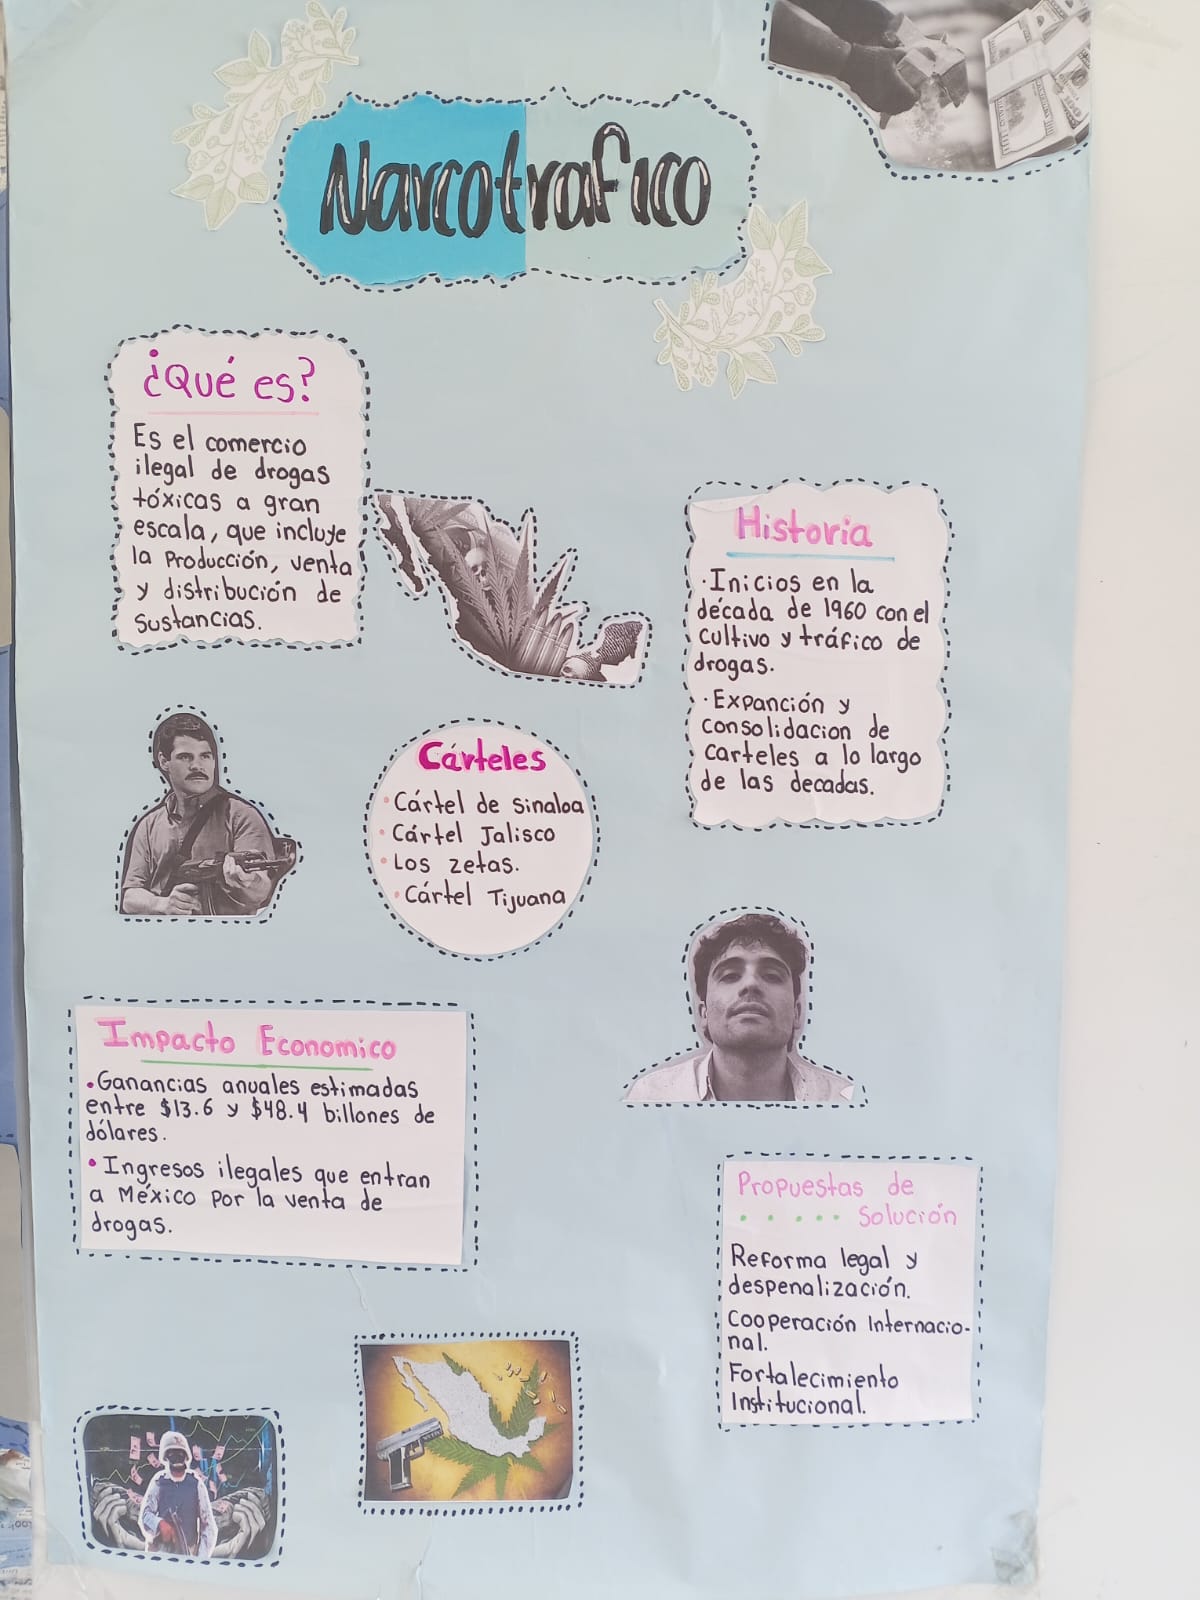 Narcotrafico
¿Qué es?
Es el comercio
ilegal de drogas
tóxicas a gran
escala, que incluye
la Producción, venta
y distribución de
sustancias.
Historia
·Inicios en la
década de 1960 con el
cultivo y tráfico de
drogas.
·Expanción y
consolidacion de
carteles a lo largo
de las decadas.
Cárteles
·Cártel de Sinaloa
·Cártel Jalisco
·Los Zetas.
·Cártel Tijuana
Impacto Economico
•Ganancias anuales estimadas
entre $13.6 y $48.4 billones de
dólares.
•Ingresos ilegales que entran
a México por la venta de
drogas.
Propuestas de
Solución
Reforma legal y
despenalización.
Cooperación Internacio-
nal.
Fortalecimiento
Institucional.